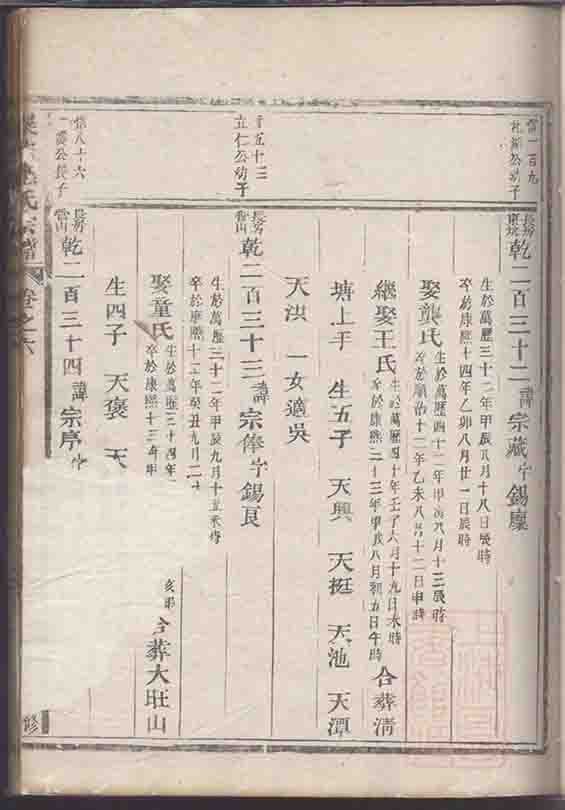 雷一百九
礼卿公幼子
長房東坑 乾二百三十二 諱宗藏 字錫廛
生於萬歷三十二年甲辰八月十八日戌時
卒於康熙十四年乙卯八月廿二日辰時
娶龔氏 生於萬歷四十二年甲寅八月十三辰時
卒於順治十二年乙未八月十二日申時
繼娶王氏 生於萬歷四十年壬子六月十九日未時
卒於康熙二十三年甲子八月初五日午時 合葬清
塘上手 生五子 天興 天挺 天池 天潭
天洪 一女適吳
五十三
立仁公幼子
長房雷山 乾二百三十三 諱宗俸 字錫良
生於萬歷三十二年甲辰九月十五未時
卒於康熙十二年癸丑九月二
娶童氏 生於萬歷三十四年
卒於康熙十三年甲
亥時 合葬大旺山
生四子 天褒 天
八十六
一震公長子
長房雷山 乾二百三十四 諱宗序 字
氏宗譜 卷之六
修